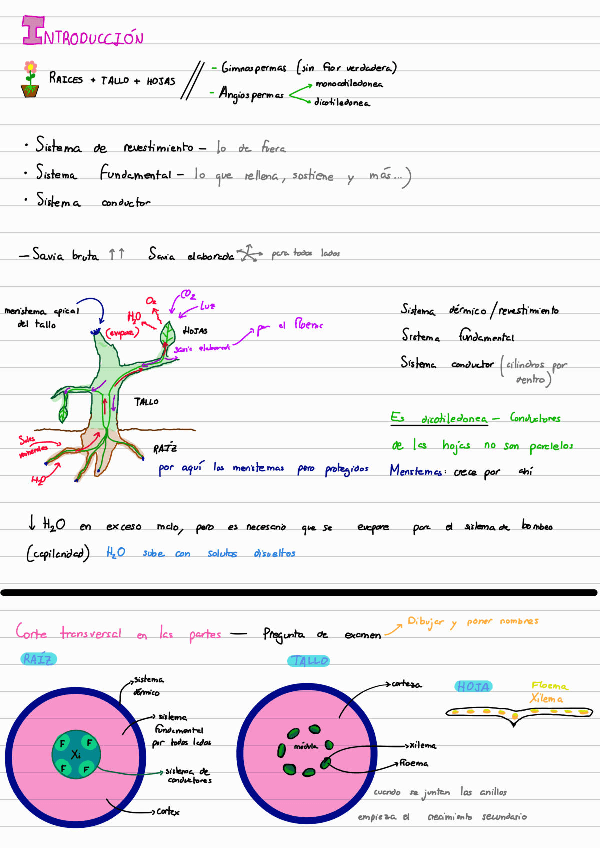 INTRODUCCIÓN
RAICES + TALLO + HOJAS
- Gimnospermas (sin flor verdadera)
- Angiospermas
monocotiledonea
dicotiledonea
· Sistema de revestimiento - lo de fuera
· Sistema Fundamental - lo que rellena, sostiene y más...)
· Sistema conductor
- Savia bruta ↑↑ Savia elaborada para todos lados
meristema apical
del tallo
H2O
(evapora)
O2
CO2
Luz
HOJAS
savia elaborada
por el floema
TALLO
RAÍZ
Sales
minerales
H2O
por aquí los meristemas pero protegidos
Sistema dérmico / revestimiento
Sistema fundamental
Sistema conductor (cilindros por
dentro)
Es dicotiledonea - Conductores
de las hojas no son parcelos
Meristemas: crece por ahí
↓ H2O en exceso malo, pero es necesario que se evapore para el sistema de bombeo
(capilaridad) H2O sube con solutos disueltos
Corte transversal en las partes - Pregunta de examen
Dibujar y poner nombres
RAÍZ
sistema
dérmico
sistema
fundamental
por todos lados
sistema de
conductores
cortex
F F
Xi
F F
TALLO
corteza
médula
xilema
floema
cuando se juntan los anillos
empieza el crecimiento secundario
HOJA
Floema
Xilema